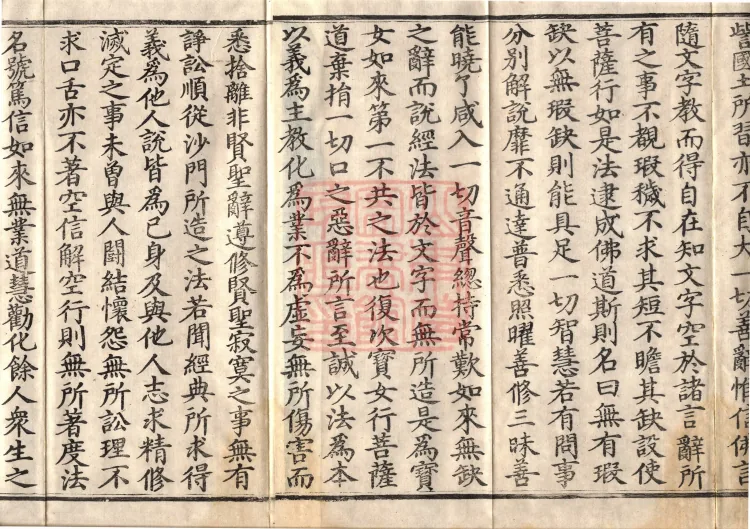 訾國土所習亦不自大一切善辭惟信佛言
隨文字教而得自在知文字空於諸言辭所
有之事不覩瑕穢不求其短不瞻其缺設使
菩薩行如是法逮成佛道斯則名曰無有瑕
缺以無瑕缺則能具足一切智慧若有問事
分別解說靡不通達普悉照曜善修三昧善
能曉了咸入一切音聲總持常歎如來無缺
之辭而說經法皆於文字而無所造是為寶
女如來第一不共之法也復次寶女行菩薩
道棄捐一切口之惡辭所言至誠以法為本
以義為主教化為業不為虛妄無所傷害而
悉捨離非賢聖辭遵修賢聖寂寞之事無有
諍訟順從沙門所造之法若聞經典所求得
義為他人說皆為己身及與他人志求精修
滅定之事未曾與人鬪結懷怨無所訟理不
求口舌亦不著空信解空行則無所著度法
名號篤信如來無業道慧勸化餘人眾生之